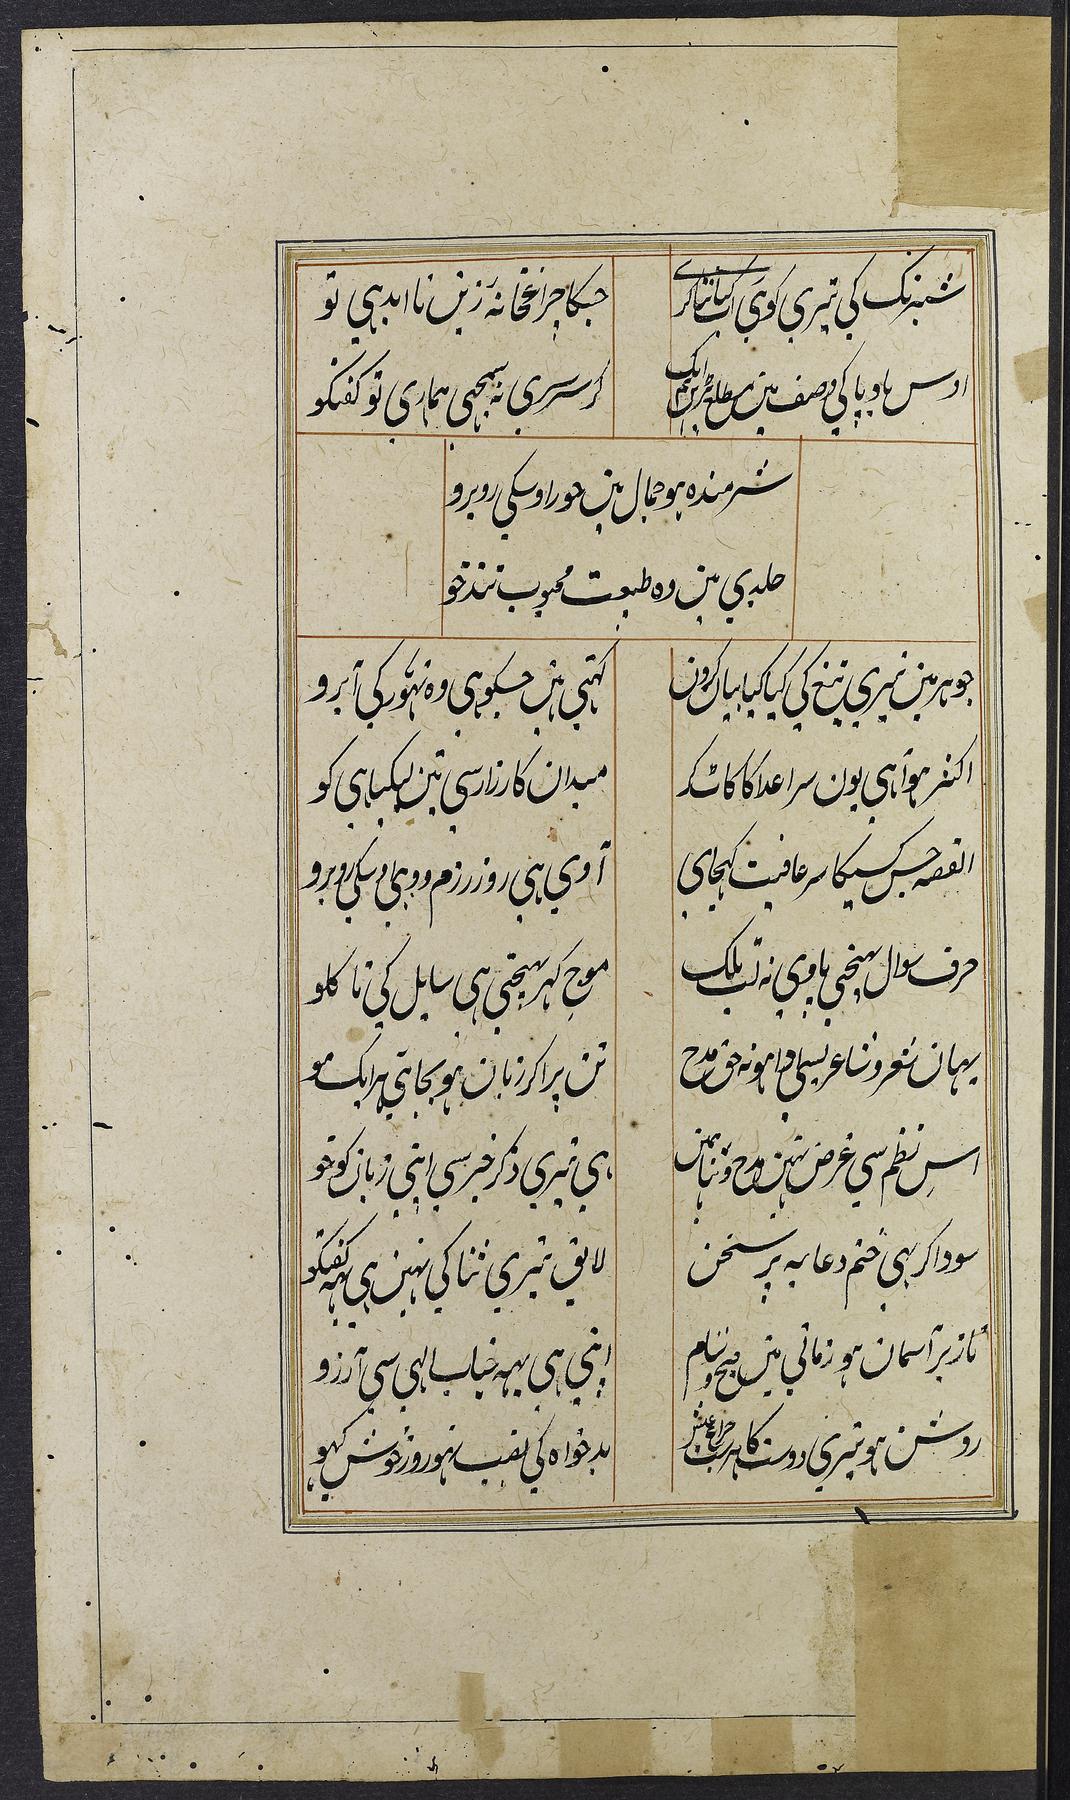 شبرنک کی تیری کوہی اب کیا ثنا کری
جسکا چراغخانهٔ زین تا ابد ہی تو
اوس بادپا کی وصف مین مطلع کرین ہم ایک
کر سرسری نہ سمجهی ہماری تو کفتکو
شرمندہ ہو جمال مین حور اوسکی روبرو
جلدی مین وہ طبیعت محبوب تندخو
جوہر مین تیری تیغ کی کیا کیا بیان کرون
کہتی ہین جسکو ہی وہ تہور کی آبرو
اکثر ہوا ہی یون سر اعدا کا کاٹ کر
میدان کارزار سی تین لیکیا ہی کو
القصہ جس کسیکا سر عافیت کہجای
آوی ہی روز رزم وو ہی اوسکی روبرو
حرف سوال پہنچی پاوی نہ لب تلک
موج کہر پہنچتی ہی سایل کی تا کلو
یہان شعر و شاعری سی ادا ہو نہ حق مدح
تن پر اکر زبان ہو بجای ہر ایک مو
اس نظم سی غرض نہین مدح و ثنا ہمین
ہی تیری ذکر خیر سی اپنی زبان کو خو
سودا کر ہی ختم دعایہ پر سخن
لایق تیری ثنا کی نہین ہی یہہ کفتکو
تا زیر آسمان ہو زمانی مین صبح و شام
اپنی ہی یہہ جناب الہی سی آرزو
روشن ہو تیری دوست کا ہر شب چراغ عیش
بدخواہ کی نصیب نہو روز خوش کبهو